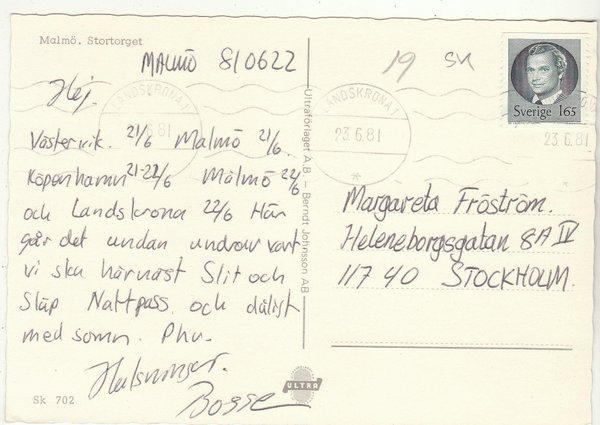 Malmö. Stortorget
MALMÖ 810622
Hej.
Västervik. 21/6 Malmö 21/6.
Köpenhamn 21-22/6 Malmö 22/6
och Landskrona 22/6 Här
går det undan undrar vart
vi ska härnäst Slit och
Släp Nattpass och dåligt
med sömn. Phu.
Hälsningar.
Bosse
Sk 702
ULTRA
Ultraförlaget A.B. — Berndt Johnsson AB
19 SK
LANDSKRONA 1
6.81
LANDSKRONA 1
23.6.81
23.6.81
Sverige 165
Margareta Fröström.
Heleneborgsgatan 8A IV
117 40 STOCKHOLM.